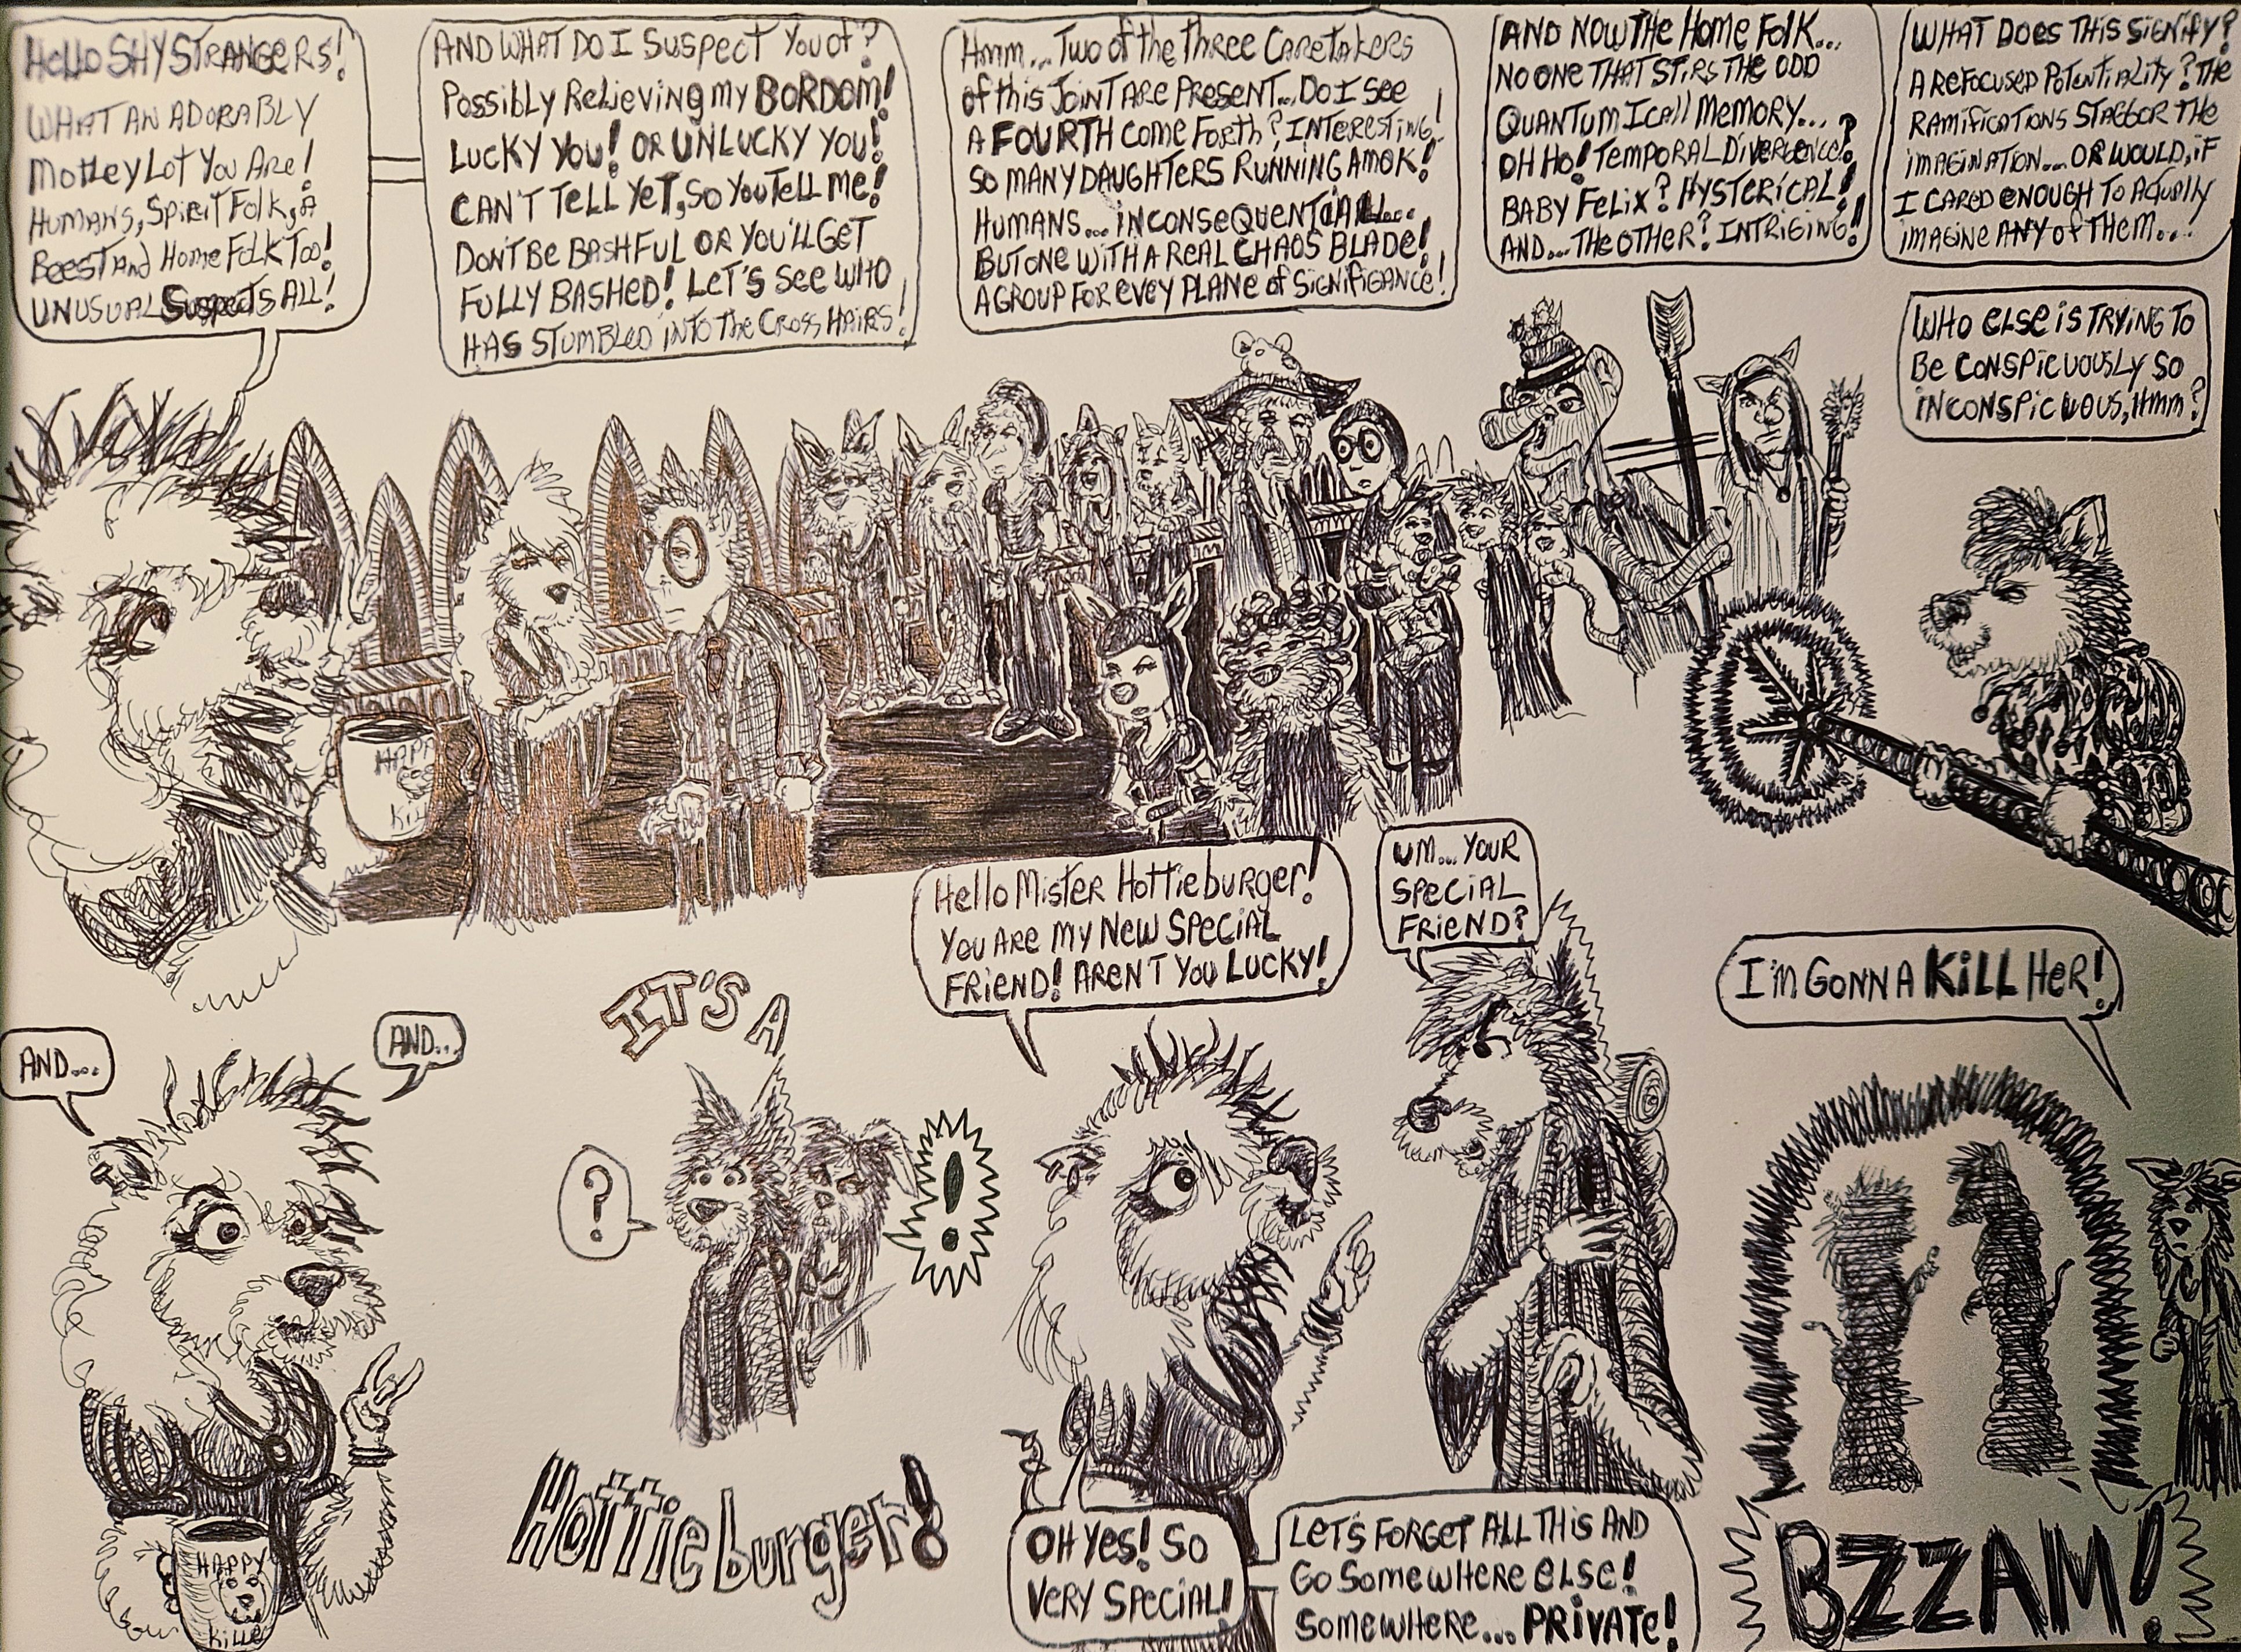 HELLO SHY STRANGERS!
WHAT AN ADORABLY
MOTLEY LOT YOU ARE!
HUMANS, SPIRIT FOLK, A
BEEST AND HOME FOLK TOO!
UNUSUAL SUSPECTS ALL!
AND WHAT DO I SUSPECT YOU OF?
POSSIBLY RELIEVING MY BORDOM!
LUCKY YOU! OR UNLUCKY YOU!
CAN'T TELL YET, SO YOU TELL ME!
DON'T BE BASHFUL OR YOU'LL GET
FULLY BASHED! LET'S SEE WHO
HAS STUMBLED INTO THE CROSS HAIRS!
HMM... TWO OF THE THREE CARETAKERS
OF THIS JOINT ARE PRESENT... DO I SEE
A FOURTH COME FORTH? INTERESTING!
SO MANY DAUGHTERS RUNNING AMOK!
HUMANS... INCONSEQUENTIAL...
BUT ONE WITH A REAL CHAOS BLADE!
A GROUP FOR EVEY PLANE OF SIGNIFIGANCE!
AND NOW THE HOME FOLK...
NO ONE THAT STIRS THE ODD
QUANTUM I CALL MEMORY...
OH HO! TEMPORAL DIVERGENCE?
BABY FELIX? HYSTERICAL!
AND... THE OTHER? INTRIGING!
WHAT DOES THIS SIGNIFY?
A REFOCUSED POTENTIALITY? THE
RAMIFICATIONS STAGGOR THE
IMAGINATION... OR WOULD, IF
I CARED ENOUGH TO ACTUALLY
IMAGINE ANY OF THEM...
WHO ELSE IS TRYING TO
BE CONSPICUOUSLY SO
INCONSPICUOUS, HMM?
HAPPY
KILL
AND...
AND...
HAPPY
KILLER
IT'S A
?
!
HOTTIEBURGER!
HELLO MISTER HOTTIEBURGER!
YOU ARE MY NEW SPECIAL
FRIEND! AREN'T YOU LUCKY!
UM... YOUR
SPECIAL
FRIEND?
OH YES! SO
VERY SPECIAL!
LET'S FORGET ALL THIS AND
GO SOMEWHERE ELSE!
SOMEWHERE... PRIVATE!
I'M GONNA KILL HER!
BZZAM!